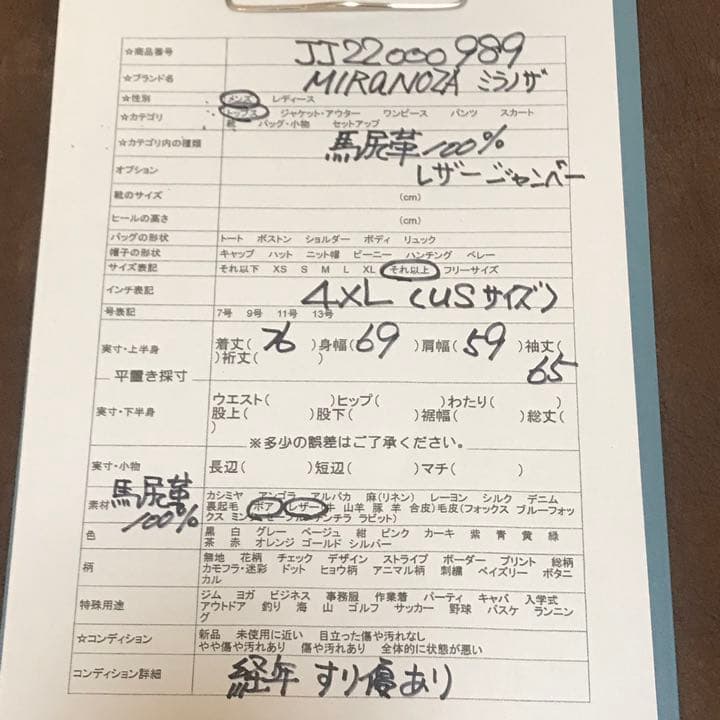 ☆商品番号 JJ22000989
☆ブランド名 MIRANOZA ミラノザ
☆性別 メンズ レディース
☆カテゴリ トップス ジャケット・アウター ワンピース パンツ スカート
靴 バッグ・小物 セットアップ
☆カテゴリ内の種類 馬尻革100%
オプション レザージャンバー
靴のサイズ (cm)
ヒールの高さ (cm)
バッグの形状 トート ボストン ショルダー ボディ リュック
帽子の形状 キャップ ハット ニット帽 ビーニー ハンチング ベレー
サイズ表記 それ以下 XS S M L XL それ以上 フリーサイズ
インチ表記 4XL (USサイズ)
号表記 7号 9号 11号 13号
実寸・上半身 着丈( 76 )身幅( 69 )肩幅( 59 )袖丈( 65
)裄丈( )
平置き採寸
実寸・下半身 ウエスト( )ヒップ( )わたり( )
股上( )股下( )裾幅( )総丈(
)
※多少の誤差はご了承ください。
実寸・小物 長辺( )短辺( )マチ( )
素材 馬尻革100% カシミヤ アンゴラ アルパカ 麻(リネン) レーヨン シルク デニム
裏起毛 ボア レザー(牛 山羊 豚 羊 合皮)毛皮(フォックス ブルーフォッ
クス ミンク セーブル チンチラ ラビット)
色 黒 白 グレー ベージュ 紺 ピンク カーキ 紫 青 黄 緑
茶 赤 オレンジ ゴールド シルバー
柄 無地 花柄 チェック デザイン ストライプ ボーダー プリント 総柄
カモフラ・迷彩 ドット ヒョウ柄 アニマル柄 刺繍 ペイズリー ボタニ
カル
特殊用途 ジム ヨガ ビジネス 事務服 作業着 パーティ キャバ 入学式
アウトドア 釣り 海 山 ゴルフ サッカー 野球 バスケ ランニン
グ
☆コンディション 新品 未使用に近い 目立った傷や汚れなし
やや傷や汚れあり 傷や汚れあり 全体的に状態が悪い
コンディション詳細 経年 すり傷あり